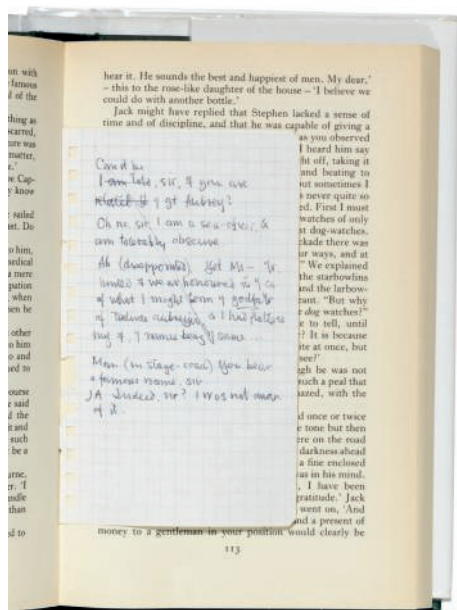 on with
famous
l of the
thing as
scarred,
ure was
matter,
e.'
e Cap-
y know
sailed
et. Do
o him,
nedical
a mere
pation
when
en he
other
o him
o and
ed to
ourse
e said
d the
it and
such
be a
arne.
er. 'I
ndle
than
d to
hear it. He sounds the best and happiest of men. My dear,'
– this to the rose-like daughter of the house – 'I believe we
could do with another bottle.'
Jack might have replied that Stephen lacked a sense of
time and of discipline, and that he was capable of giving a
as you observed
I heard him say
ht off, taking it
and beating to
out sometimes I
s never quite so
ed. First I must
watches of only
st dog-watches.
ckade there was
ur ways, and at
" We explained
the starbowlins
and the larbow-
cant. "But why
e dog watches?"
e to tell, until
? It is because
ite at once, but
see?'
gh he was not
such a peal that
azed, with the
d once or twice
e tone but then
ere on the road
darkness ahead
a fine enclosed
as in his mind.
, I have been
gratitude.' Jack
went on, 'And
nd a present of
money to a gentleman in your position would clearly be
113
Could be
I am told, sir, if you are
related to gt Aubrey?
Oh no, sir, I am a sea-officer, &
am tolerably obscure
Ah (disappointed). Yet Mr
of what I might term
of Testudo aubreii
Man (in stage-coach) You bear
a famous name, sir
JA Indeed, sir? I was not aware
of it.